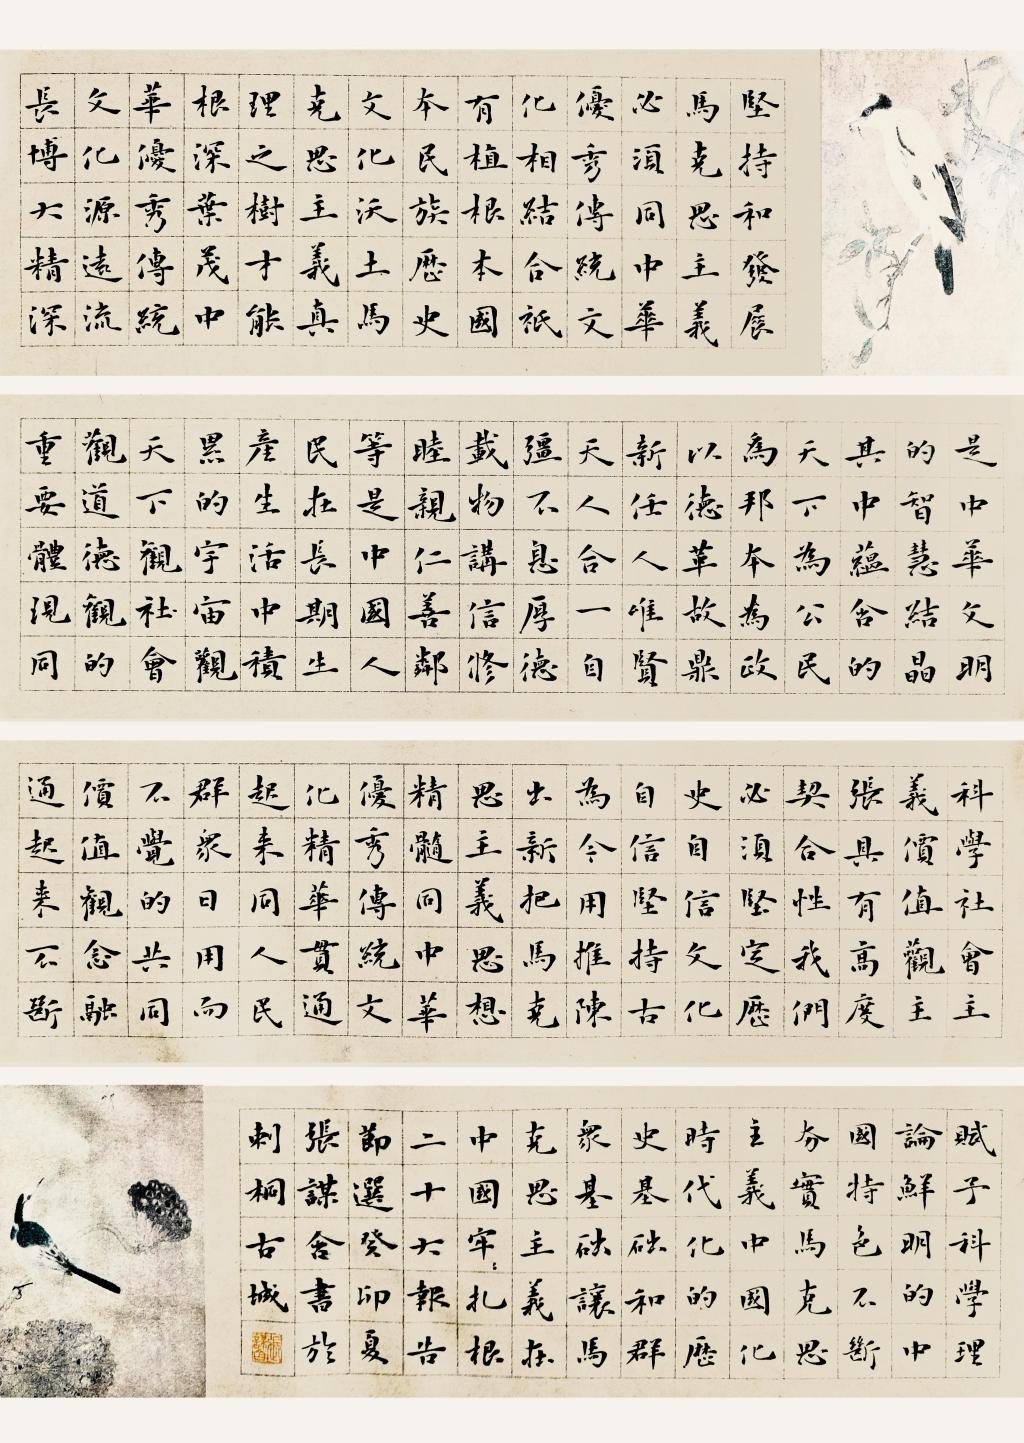 堅持和發展
馬克思主義
必須同中華
優秀傳統文
化相結合祇
有植根本國
本民族歷史
文化沃土馬
克思主義真
理之樹才能
根深葉茂中
華優秀傳統
文化源遠流
長博大精深
是中華文明
的智慧結晶
其中蘊含的
天下為公民
為邦本為政
以德革故鼎
新任人唯賢
天人合一自
彊不息厚德
載物講信修
睦親仁善鄰
等是中國人
民在長期生
產生活中積
累的宇宙觀
天下觀社會
觀道德觀的
重要體現同
科學社會主
義價值觀主
張具有高度
契合性我們
必須堅定歷
史自信文化
自信堅持古
為今用推陳
出新把馬克
思主義思想
精髓同中華
優秀傳統文
化精華貫通
起來同人民
群眾日用而
不覺的共同
價值觀念融
通起來不斷
賦予科學理
論鮮明的中
國特色不斷
夯實馬克思
主義中國化
時代化的歷
史基礎和群
眾基礎讓馬
克思主義在
中國牢牢扎根
二十大報告
節選癸卯夏
張謀舍書於
刺桐古城